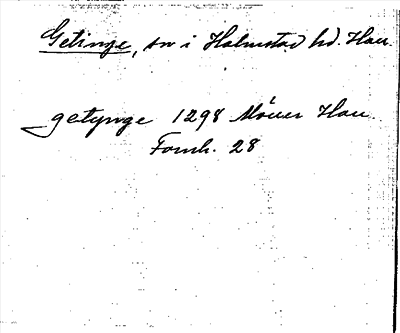 Getinge, sn i Halmstad hd. Hall.
getynge 1298 Möller Hall.
Fornh. 28